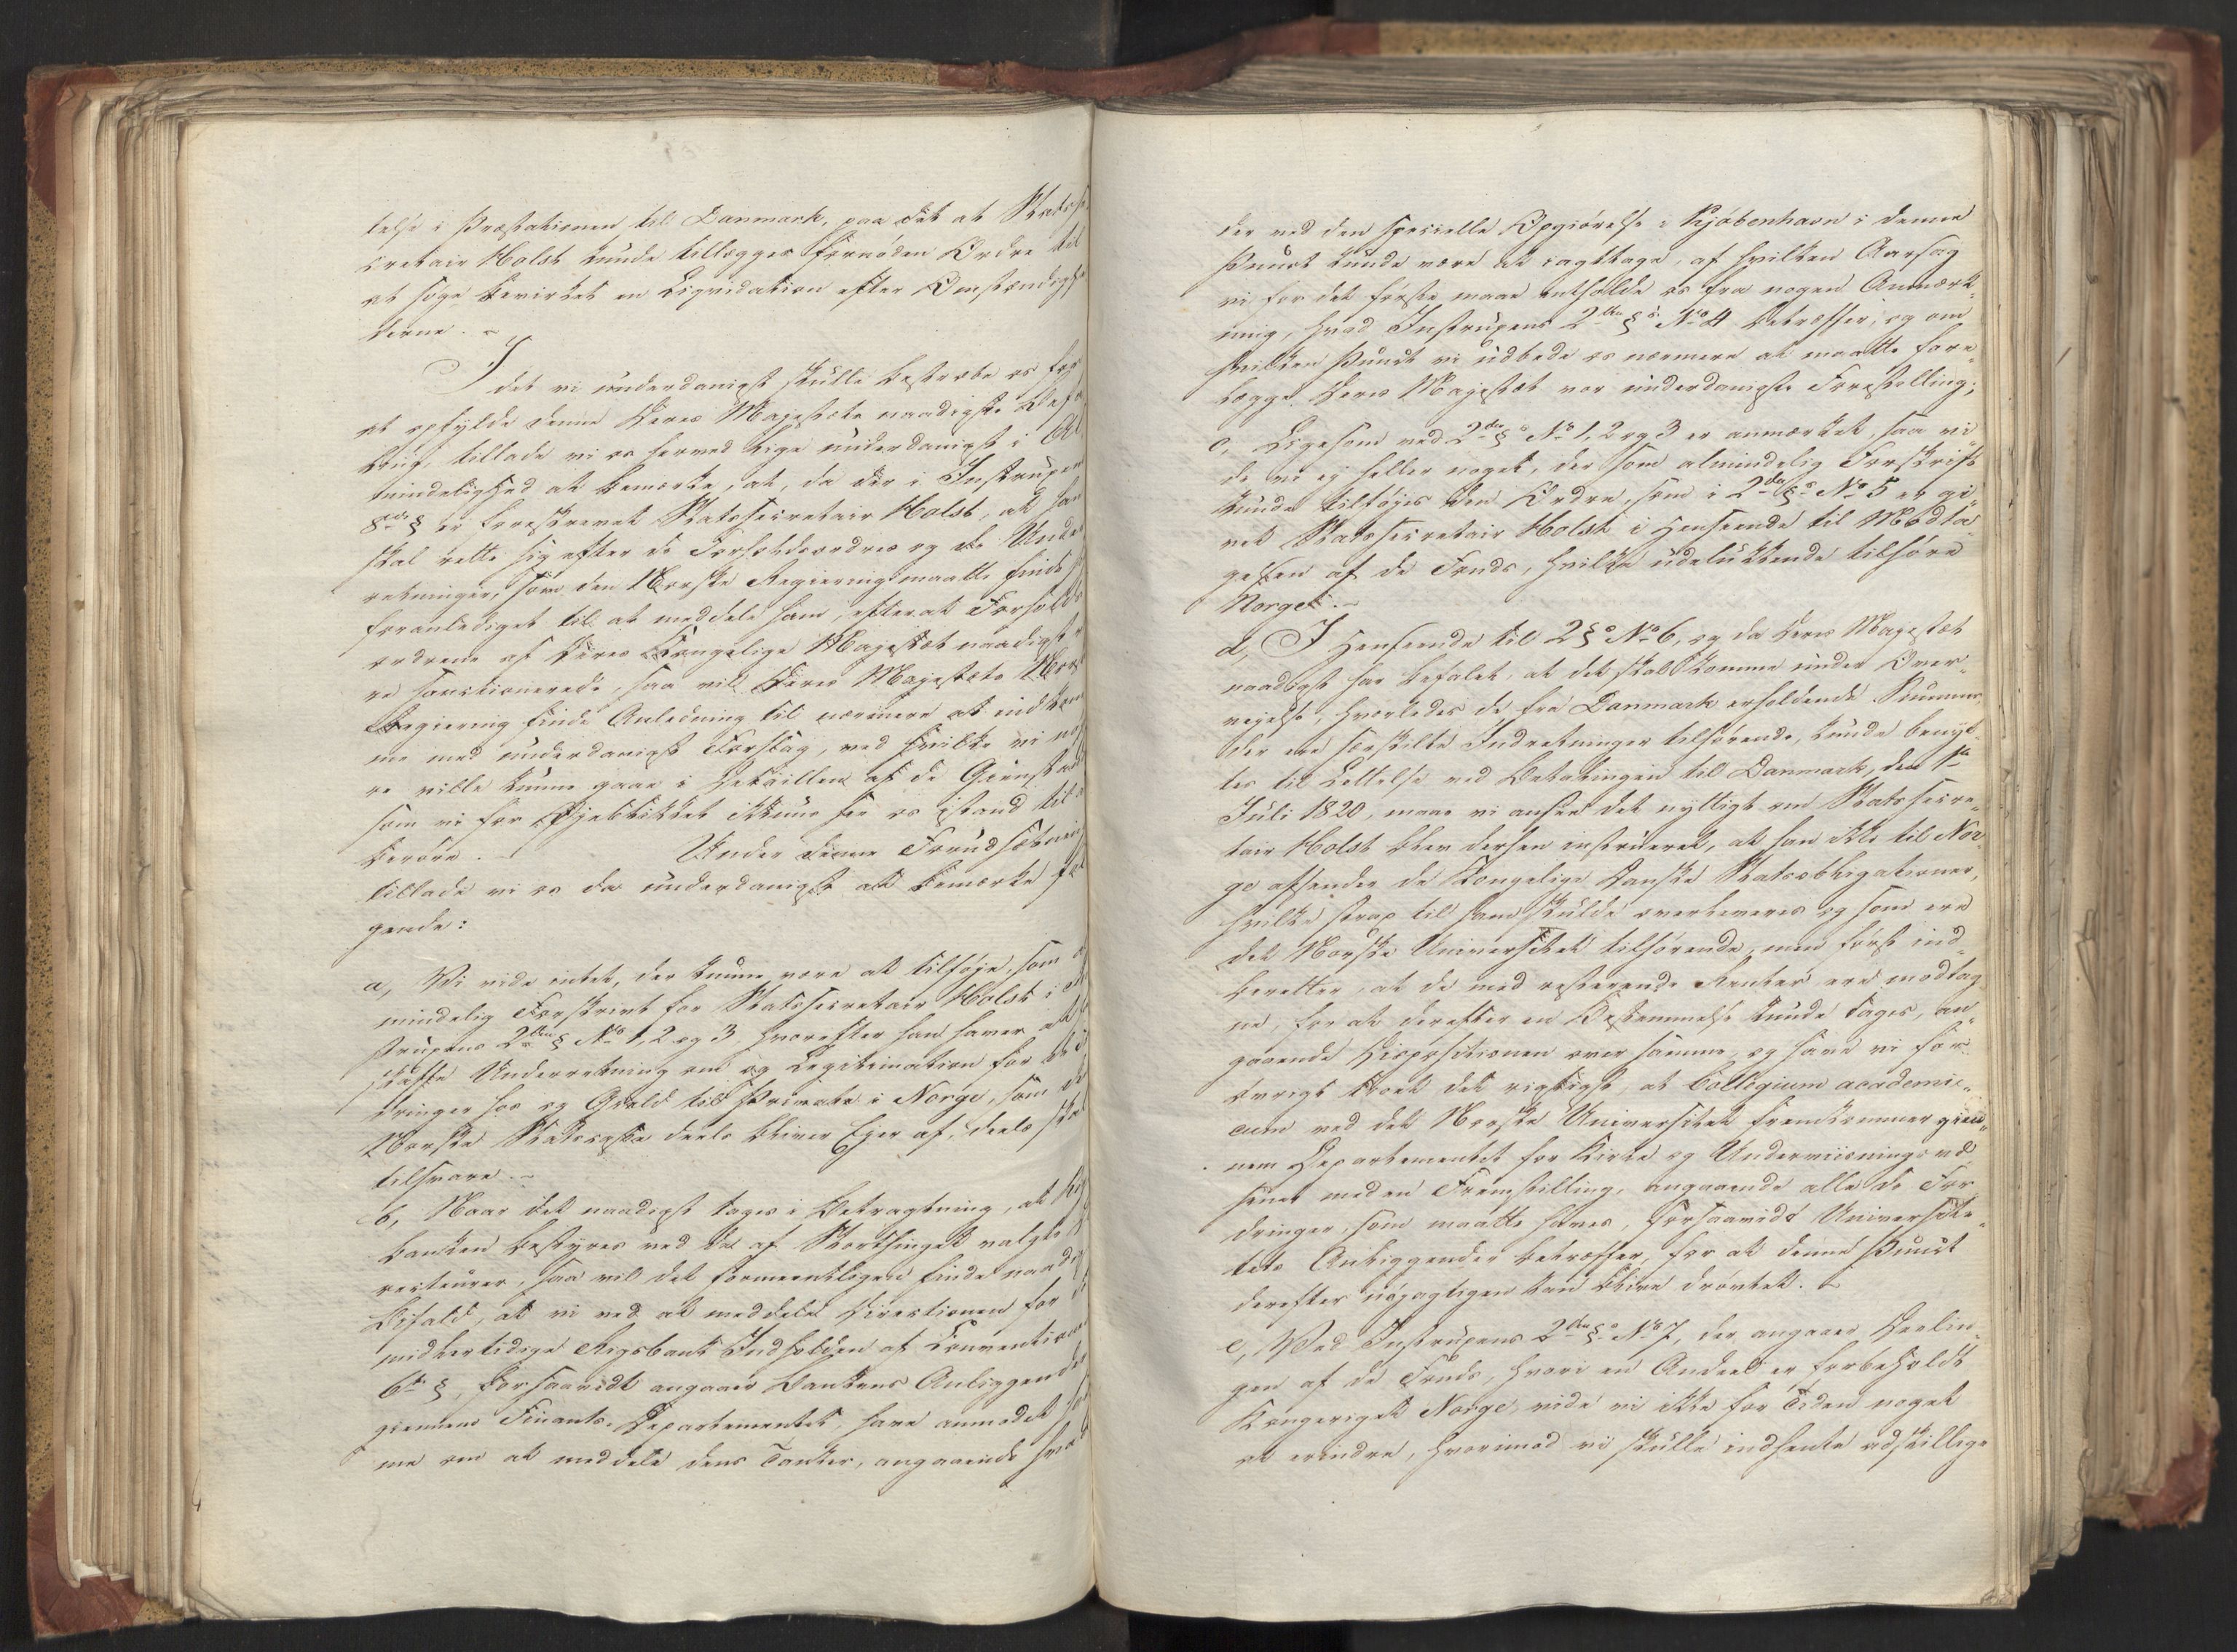 telse i Præstationen til Danmark, paa det at Statsse
cretair Holst kunde tillægges fornøden Ordre til
at søge bevirket en Liqvidation efter Omstændighe
derne. -
I det vi underdanigst skulle bestræbe os for
at opfylde denne Deres Majestæts naadigste Befa
ling, tillade vi os herved lige underdanigst i Al
mindelighed at bemærke, at, da der i Instruxens
8de § er foreskrevet Statssecretair Holst, at han
skal rette sig efter de Forholdsordres og de Under
retninger, som den Norske Regjering maatte finde sig
foranlediget til at meddele ham, efterat Forholds
ordrene af Deres Kongelige Majestæt naadigst er
re sanctionerede, saa vil Deres Majestæts Norske
Regjering finde Anledning til nærmere at indkom
me med underdanigst Forslag, ved hvilke vi nøj
re ville kunne gaae i Detaillen af de Gjenstande
som vi for Øjeblikket ikkuns see os istand til at
berøre. - Under denne Forudsætning
tillade vi os da underdanigst at bemærke føl
gende:
a, Vi vide intet, der kunne være at tilføje, som al
mindelig Forskrivt for Statssecretair Holst i In
struxens 2den § No 1, 2 og 3 hvorefter han haver at
skaffe Underretning om og Legitimation for de For
dringer hos og Gjeld til Private i Norge, som den
Norske Statscasse deels bliver Ejer af, deels skal
tilsvare. -
b, Naar det naadigst tages i Betragtning, at Rigs
banken bestyres ved de af Storthinget valgte Di
recteurer, saa vil det formeentligen finde naadigst
Bifald, at vi ved at meddele Directionen for den
midlertidige Rigsbank Indholden af Conventionens
6te §, forsaavidt angaaer Bankens Anliggender
giennem Finants-Departementet, have anmodet sam
me om at meddele dens Tanker, angaaende hvad
der ved den specielle Opgiørelse i Kjöbenhavn i denne
Punct kunde være at iagttage, af hvilken Aarsag
vi for det første maae entholde os fra nogen Anmærk„
ning, hvad Instruxens 2den §s No 4 betræffer, og om
hvilken Punct vi udbede os nærmere at maatte fore„
lægge Deres Majestæt vor underdanigste Forestilling;
c, Ligesom ved 2den §s No 1, 2 og 3 er anmærket, saa vi„
de vi ej heller noget, der som almindelig Forskrift
kunde tilføjes den Ordre, som i 2den §s No 5 er gi„
vet Statssecretair Holst i Henseende til Modta„
gelsen af de Fonds, hvilke udelukkende tilhøre
Norge. -
d, I Henseende til 2 §s No 6, og da Deres Majestæt
naadigst har befalet, at det skal komme under Over„
vejelse, hvorledes de fra Danmark erholdende Summer,
der ere særskilte Indretninger tilhørende, kunde benyt„
tes til Lettelse ved Betalingen til Danmark, den 1ste
Juli 1820, maae vi ansee det nyttigt om Statssecre„
tair Holst blev derhen instrueret, at han ikke til Nor„
ge afsender de Kongelige Danske Statsobligationer,
hvilke strax til ham skulde overleveres og som ere
det Norske Universitet tilhørende, men først ind„
beretter, at de med resterende Renter ere modtag„
ne, for at derefter en Bestemmelse kunde tages, an„
gaaende Dispositionen over samme, og have vi for„
øvrigt troet det rigtigst, at Collegium academi„
cum ved det Norske Universitet fremkommer gien„
nem Departementet for Kirke og Underviisningsvæ
senet med en Fremstilling, angaaende alle de For
dringer, som maatte haves, forsaavidt Universite„
tets Anliggender betræffer, for at denne Punct
derefter nøjagtigen kan blive drøvtet. -
e, Ved Instruxens 2den §s No 7, der angaaer Deelin„
gen af de Fonds, hvori en Andeel er forbeholdt
Kongeriget Norge, vide vi ikke for Tiden noget
at erindre, hvorimod vi skulle indhente adskillige